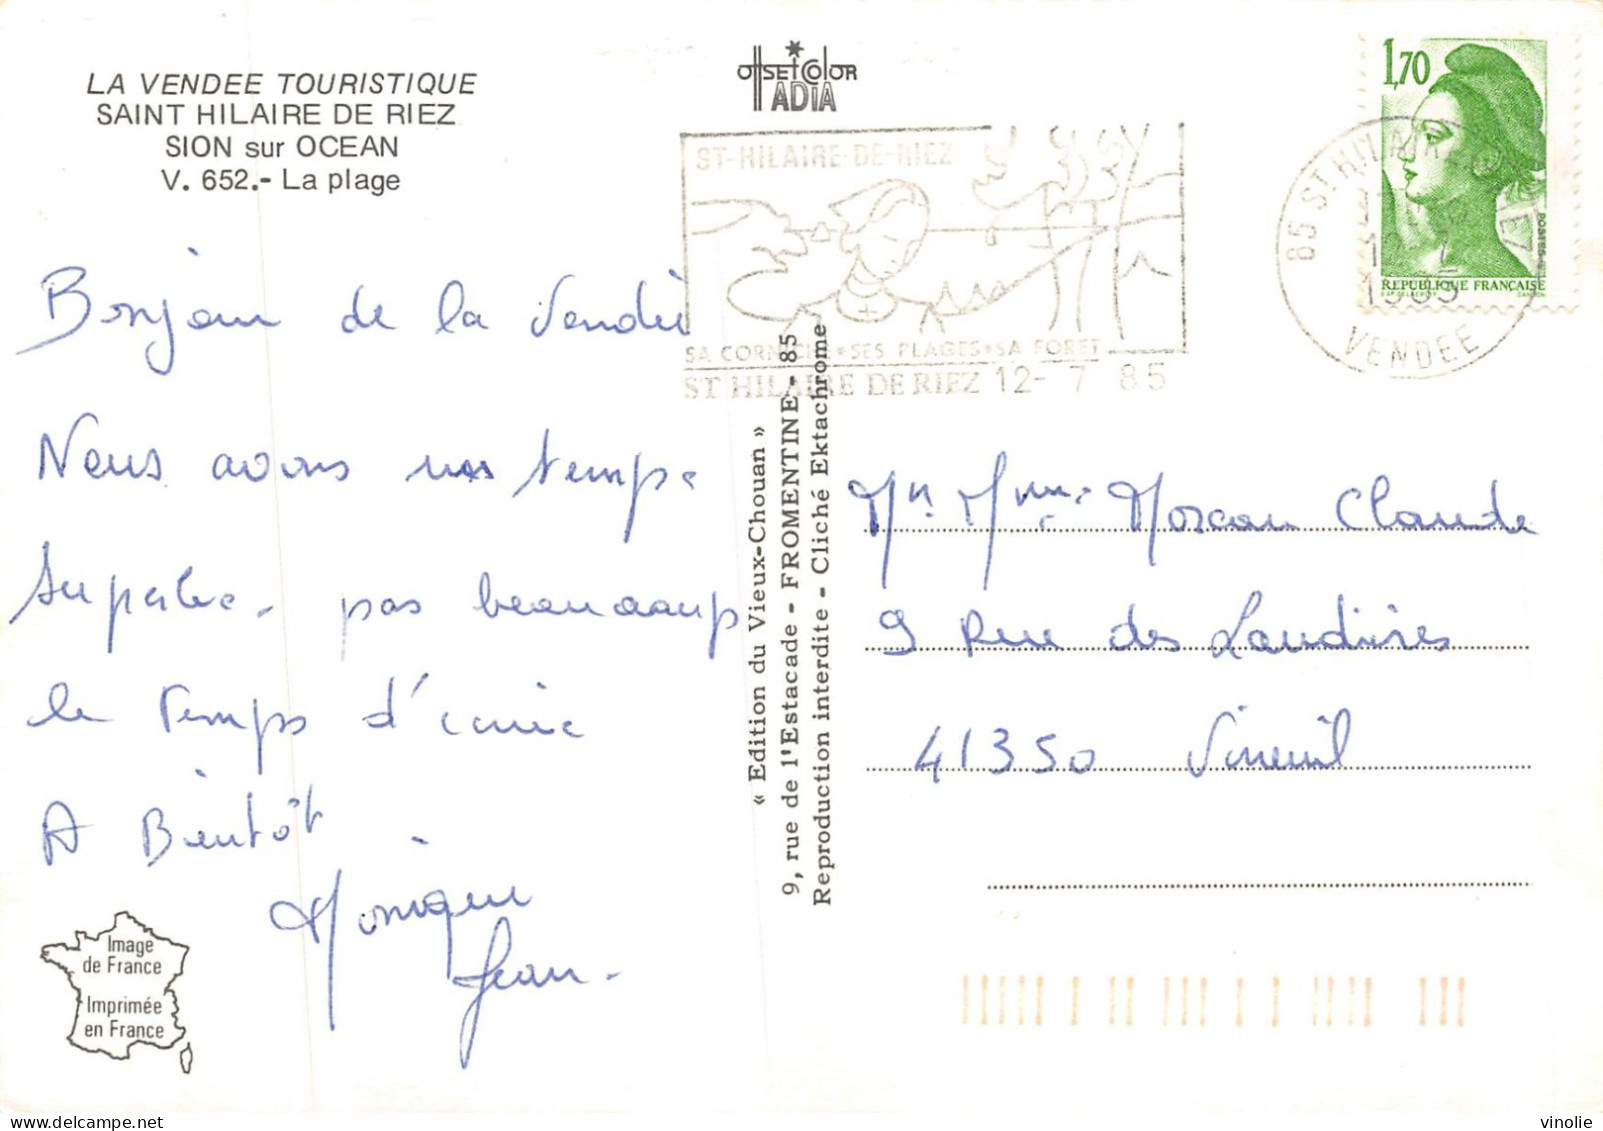 LA VENDEE TOURISTIQUE
SAINT HILAIRE DE RIEZ
SION sur OCEAN
V. 652.- La plage
Bonjour de la Vendée
Nous avons un temps
superbe. pas beaucoup
le temps d'écrire
A Bientôt
Monique
Jean.
Image
de France
Imprimée
en France
OFFSET COLOR
ADIA
ST-HILAIRE-DE-RIEZ
SA CORNICHE • SES PLAGES • SA FORET
ST HILAIRE DE RIEZ 12- 7 85
« Edition du Vieux-Chouan »
9, rue de l'Estacade - FROMENTINE - 85
Reproduction interdite - Cliché Ektachrome
1,70
POSTES
REPUBLIQUE FRANÇAISE
85 ST HILAIRE
12-7
1985
VENDEE
Mr Mme Moreau Claude
9 Rue des Laudières
41350 Vineuil
vinolie